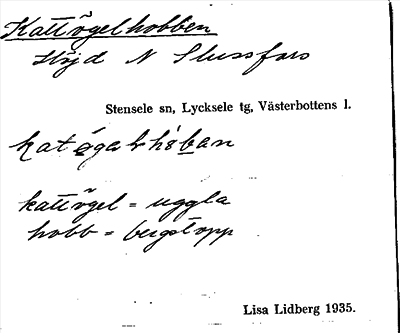 Kattögelhobben
Höjd N Slussfors
Stensele sn, Lycksele tg, Västerbottens l.
kattögel = uggla
hobb = bergstopp
Lisa Lidberg 1935.